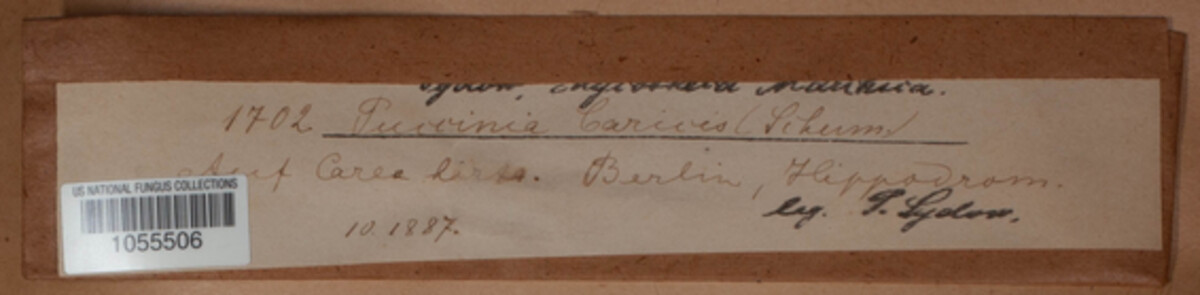 Sydow, Mycotheca Marchica.
1702 Puccinia Caricis (Schum)
Auf Carex hirta. Berlin, Hippodrom.
leg. P. Sydow.
10.1887.
US NATIONAL FUNGUS COLLECTIONS
1055506